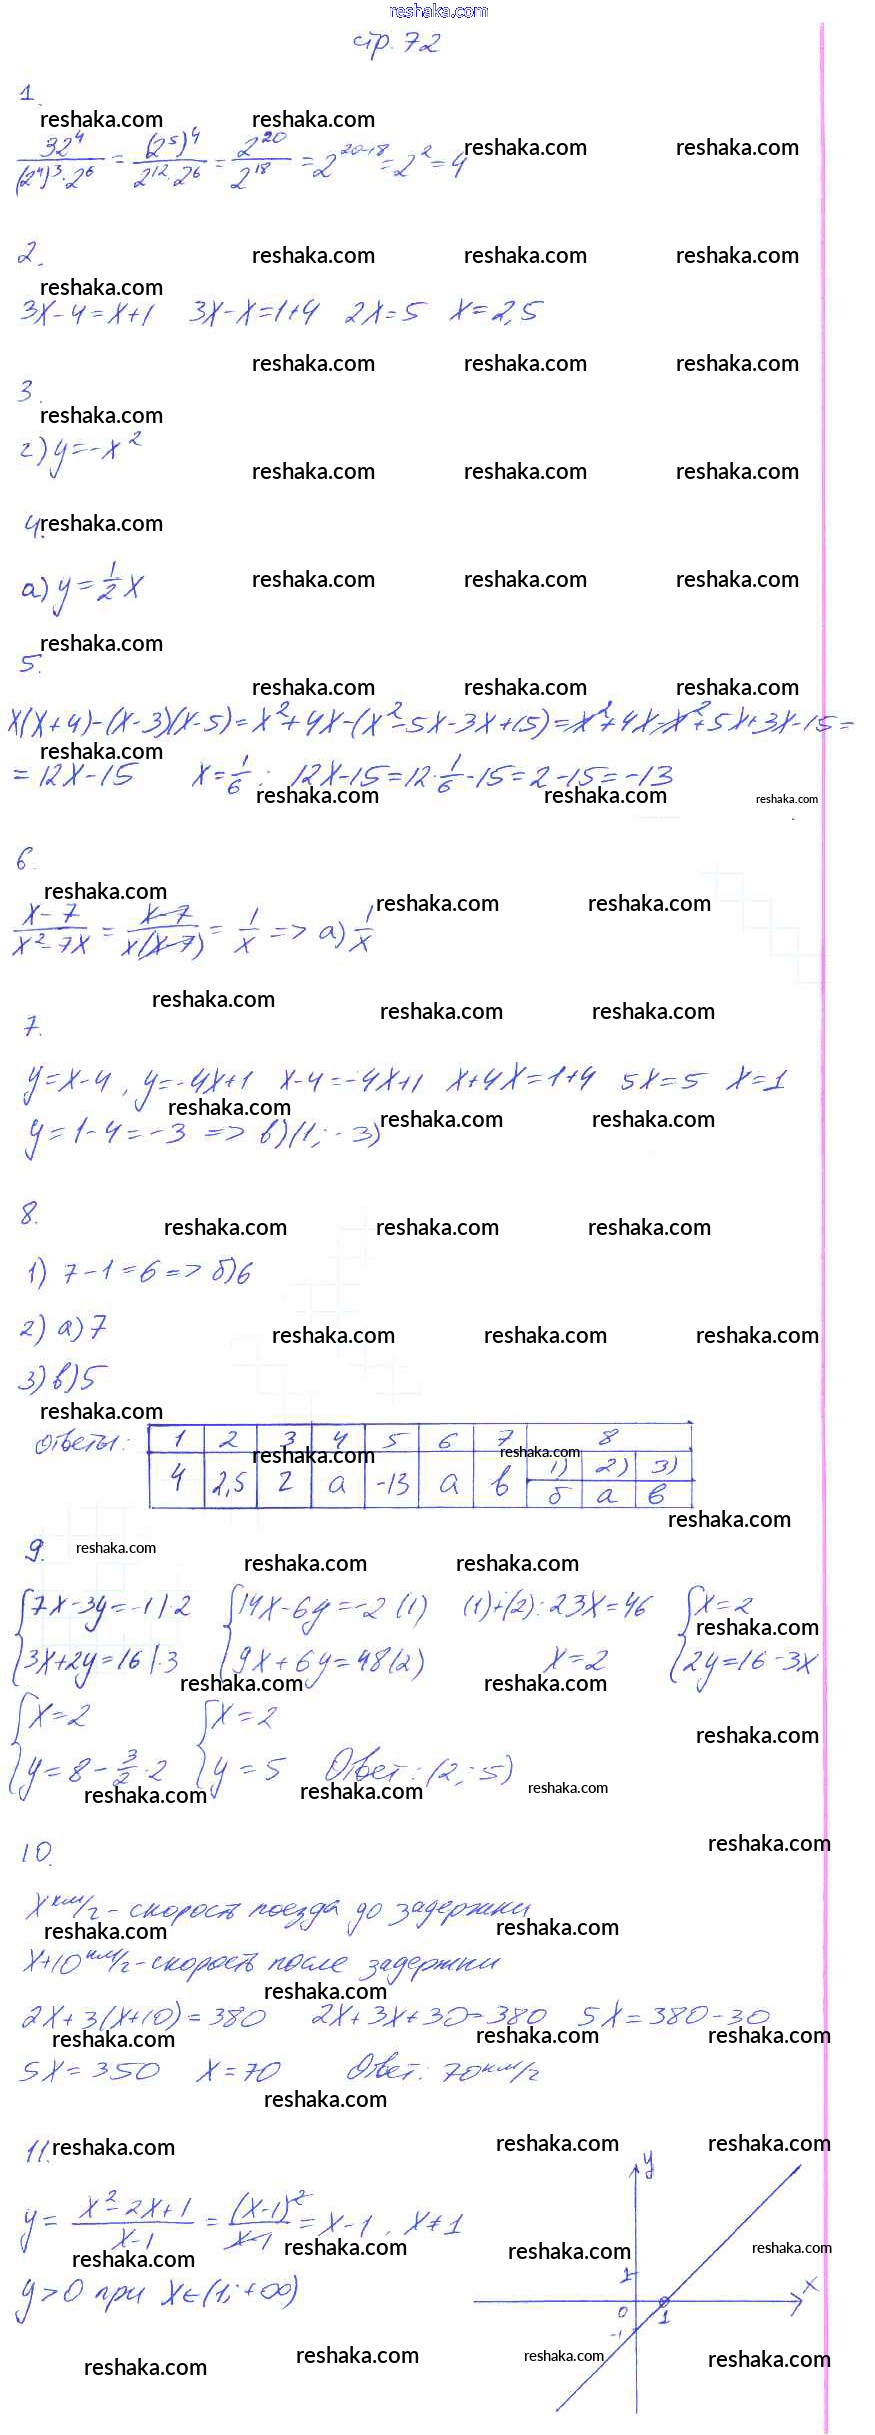 reshaka.com
стр. 72
1.
32^4/((2^4)^3·2^6) = (2^5)^4/(2^12·2^6) = 2^20/2^18 = 2^(20-18) = 2^2 = 4
2.
3x-4=x+1 3x-x=1+4 2x=5 x=2,5
3.
г) y=-x^2
4.
а) y=1/2 x
5.
x(x+4)-(x-3)(x-5)=x^2+4x-(x^2-5x-3x+15)=x^2+4x-x^2+5x+3x-15=
=12x-15 x=1/6; 12x-15=12·1/6-15=2-15=-13
6.
(x-7)/(x^2-7x) = (x-7)/(x(x-7)) = 1/x => а) 1/x
7.
y=x-4, y=-4x+1 x-4=-4x+1 x+4x=1+4 5x=5 x=1
y=1-4=-3 => в) (1; -3)
8.
1) 7-1=6 => б) 6
2) а) 7
3) в) 5
ответы: 1 2 3 4 5 6 7 8
4 2,5 г а -13 а в 1) 2) 3)
б а в
9.
{7x-3y=-1 |·2 {14x-6y=-2 (1) (1)+(2): 23x=46 {x=2
{3x+2y=16 |·3 {9x+6y=48 (2) x=2 {2y=16-3x
{x=2 {x=2
{y=8-3/2·2 {y=5 Ответ: (2; 5)
10.
x км/ч - скорость поезда до задержки
x+10 км/ч - скорость после задержки
2x+3(x+10)=380 2x+3x+30=380 5x=380-30
5x=350 x=70 Ответ: 70 км/ч
11.
y= (x^2-2x+1)/(x-1) = (x-1)^2/(x-1) = x-1, x≠1
y>0 при x∈(1; +∞)
y
x
1
0
1
-1